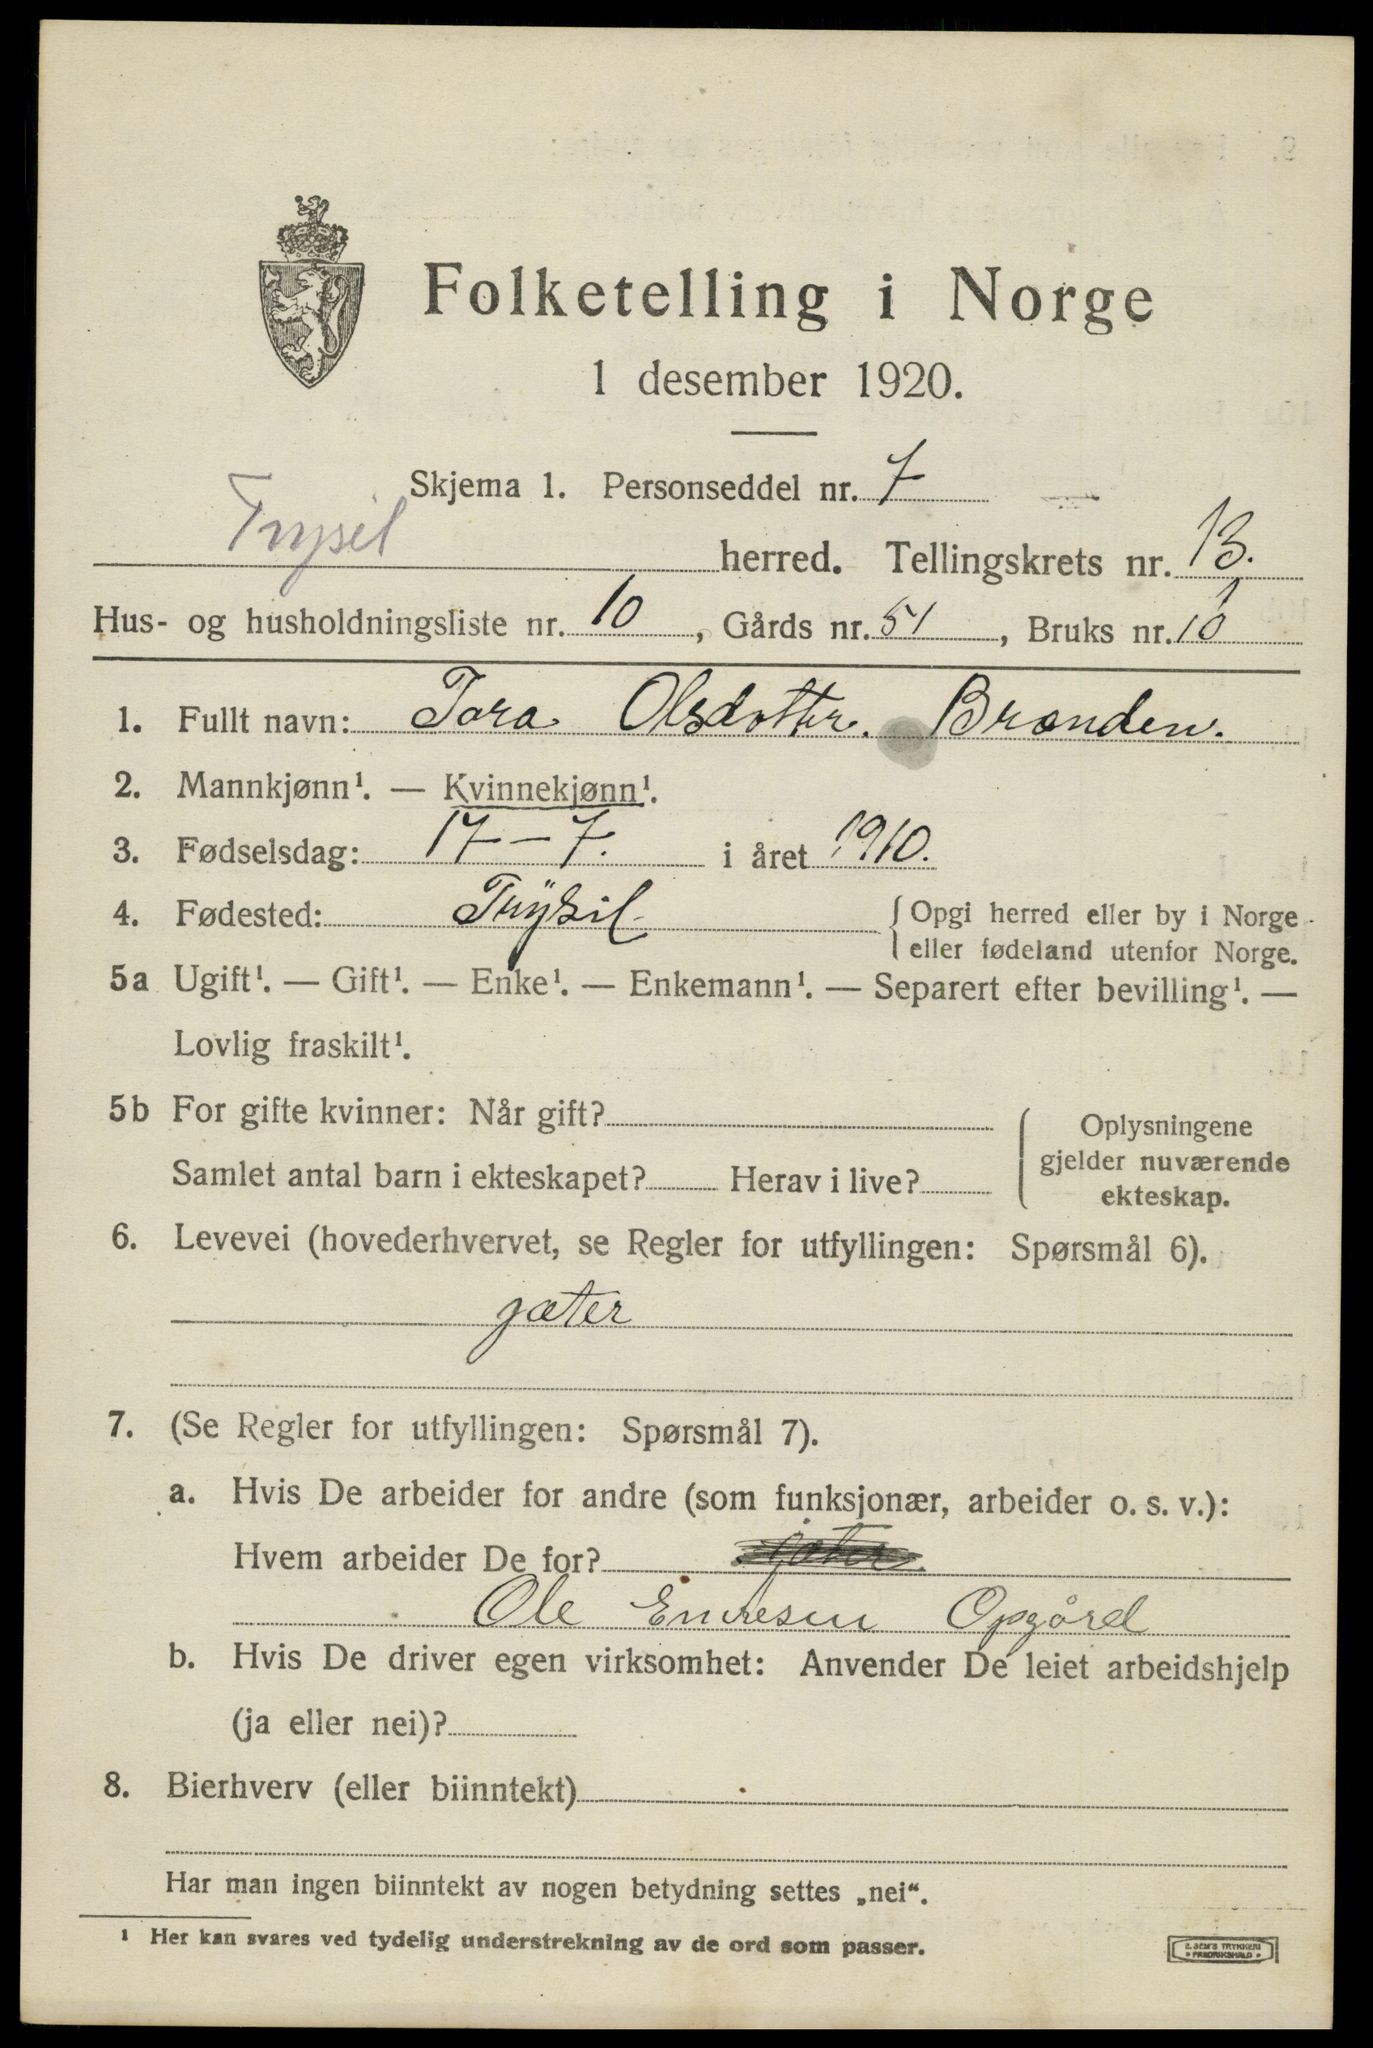 Folketelling i Norge
1 desember 1920.
Skjema 1. Personseddel nr. 7
Trysil herred. Tellingskrets nr. 13.
Hus- og husholdningsliste nr. 10, Gårds nr. 51, Bruks nr. 10 1
1. Fullt navn: Tora Olsdotter. Brænden.
2. Mannkjønn¹. — Kvinnekjønn¹.
3. Fødselsdag: 17 – 7. i året 1910.
4. Fødested: Trysil { Opgi herred eller by i Norge
eller fødeland utenfor Norge.
5a Ugift¹. — Gift¹. — Enke¹. — Enkemann¹. — Separert efter bevilling¹. —
Lovlig fraskilt¹.
5b For gifte kvinner: Når gift?
Samlet antal barn i ekteskapet? Herav i live?
Oplysningene
gjelder nuværende
ekteskap.
6. Levevei (hovederhvervet, se Regler for utfyllingen: Spørsmål 6).
gæter
7. (Se Regler for utfyllingen: Spørsmål 7).
a. Hvis De arbeider for andre (som funksjonær, arbeider o. s. v.):
Hvem arbeider De for? gæter
Ole Embresen Opgård
b. Hvis De driver egen virksomhet: Anvender De leiet arbeidshjelp
(ja eller nei)?
8. Bierhverv (eller biinntekt)
Har man ingen biinntekt av nogen betydning settes „nei“.
¹ Her kan svares ved tydelig understrekning av de ord som passer.
E. SEM'S TRYKKERI
FREDRIKSHALD